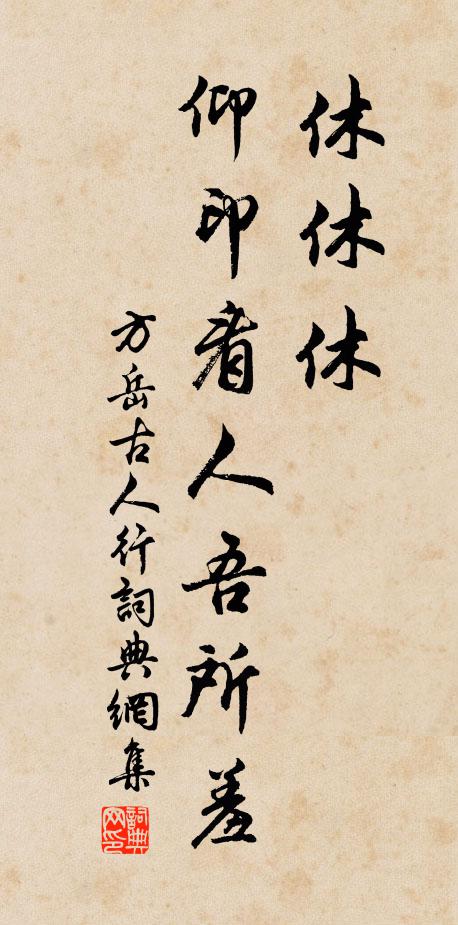 休休休
仰印看人吾所羞
方岳古人行詞典網集
詞典網印